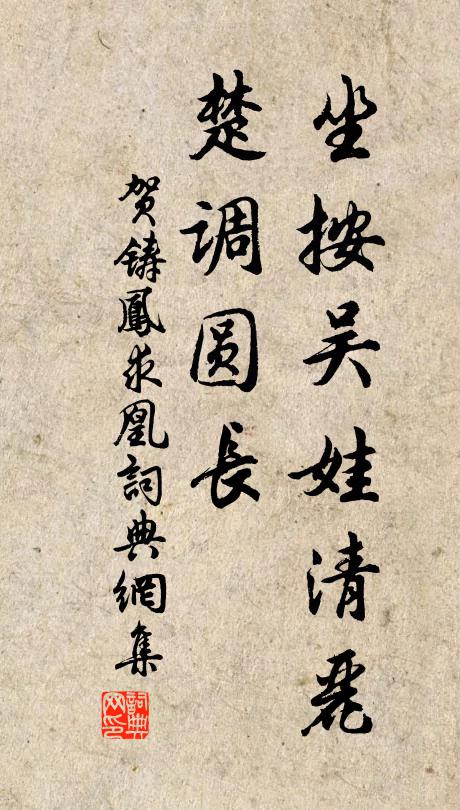 坐按吴娃清丽
楚调圆长
贺铸凤求凰詞典網集
詞典
网印